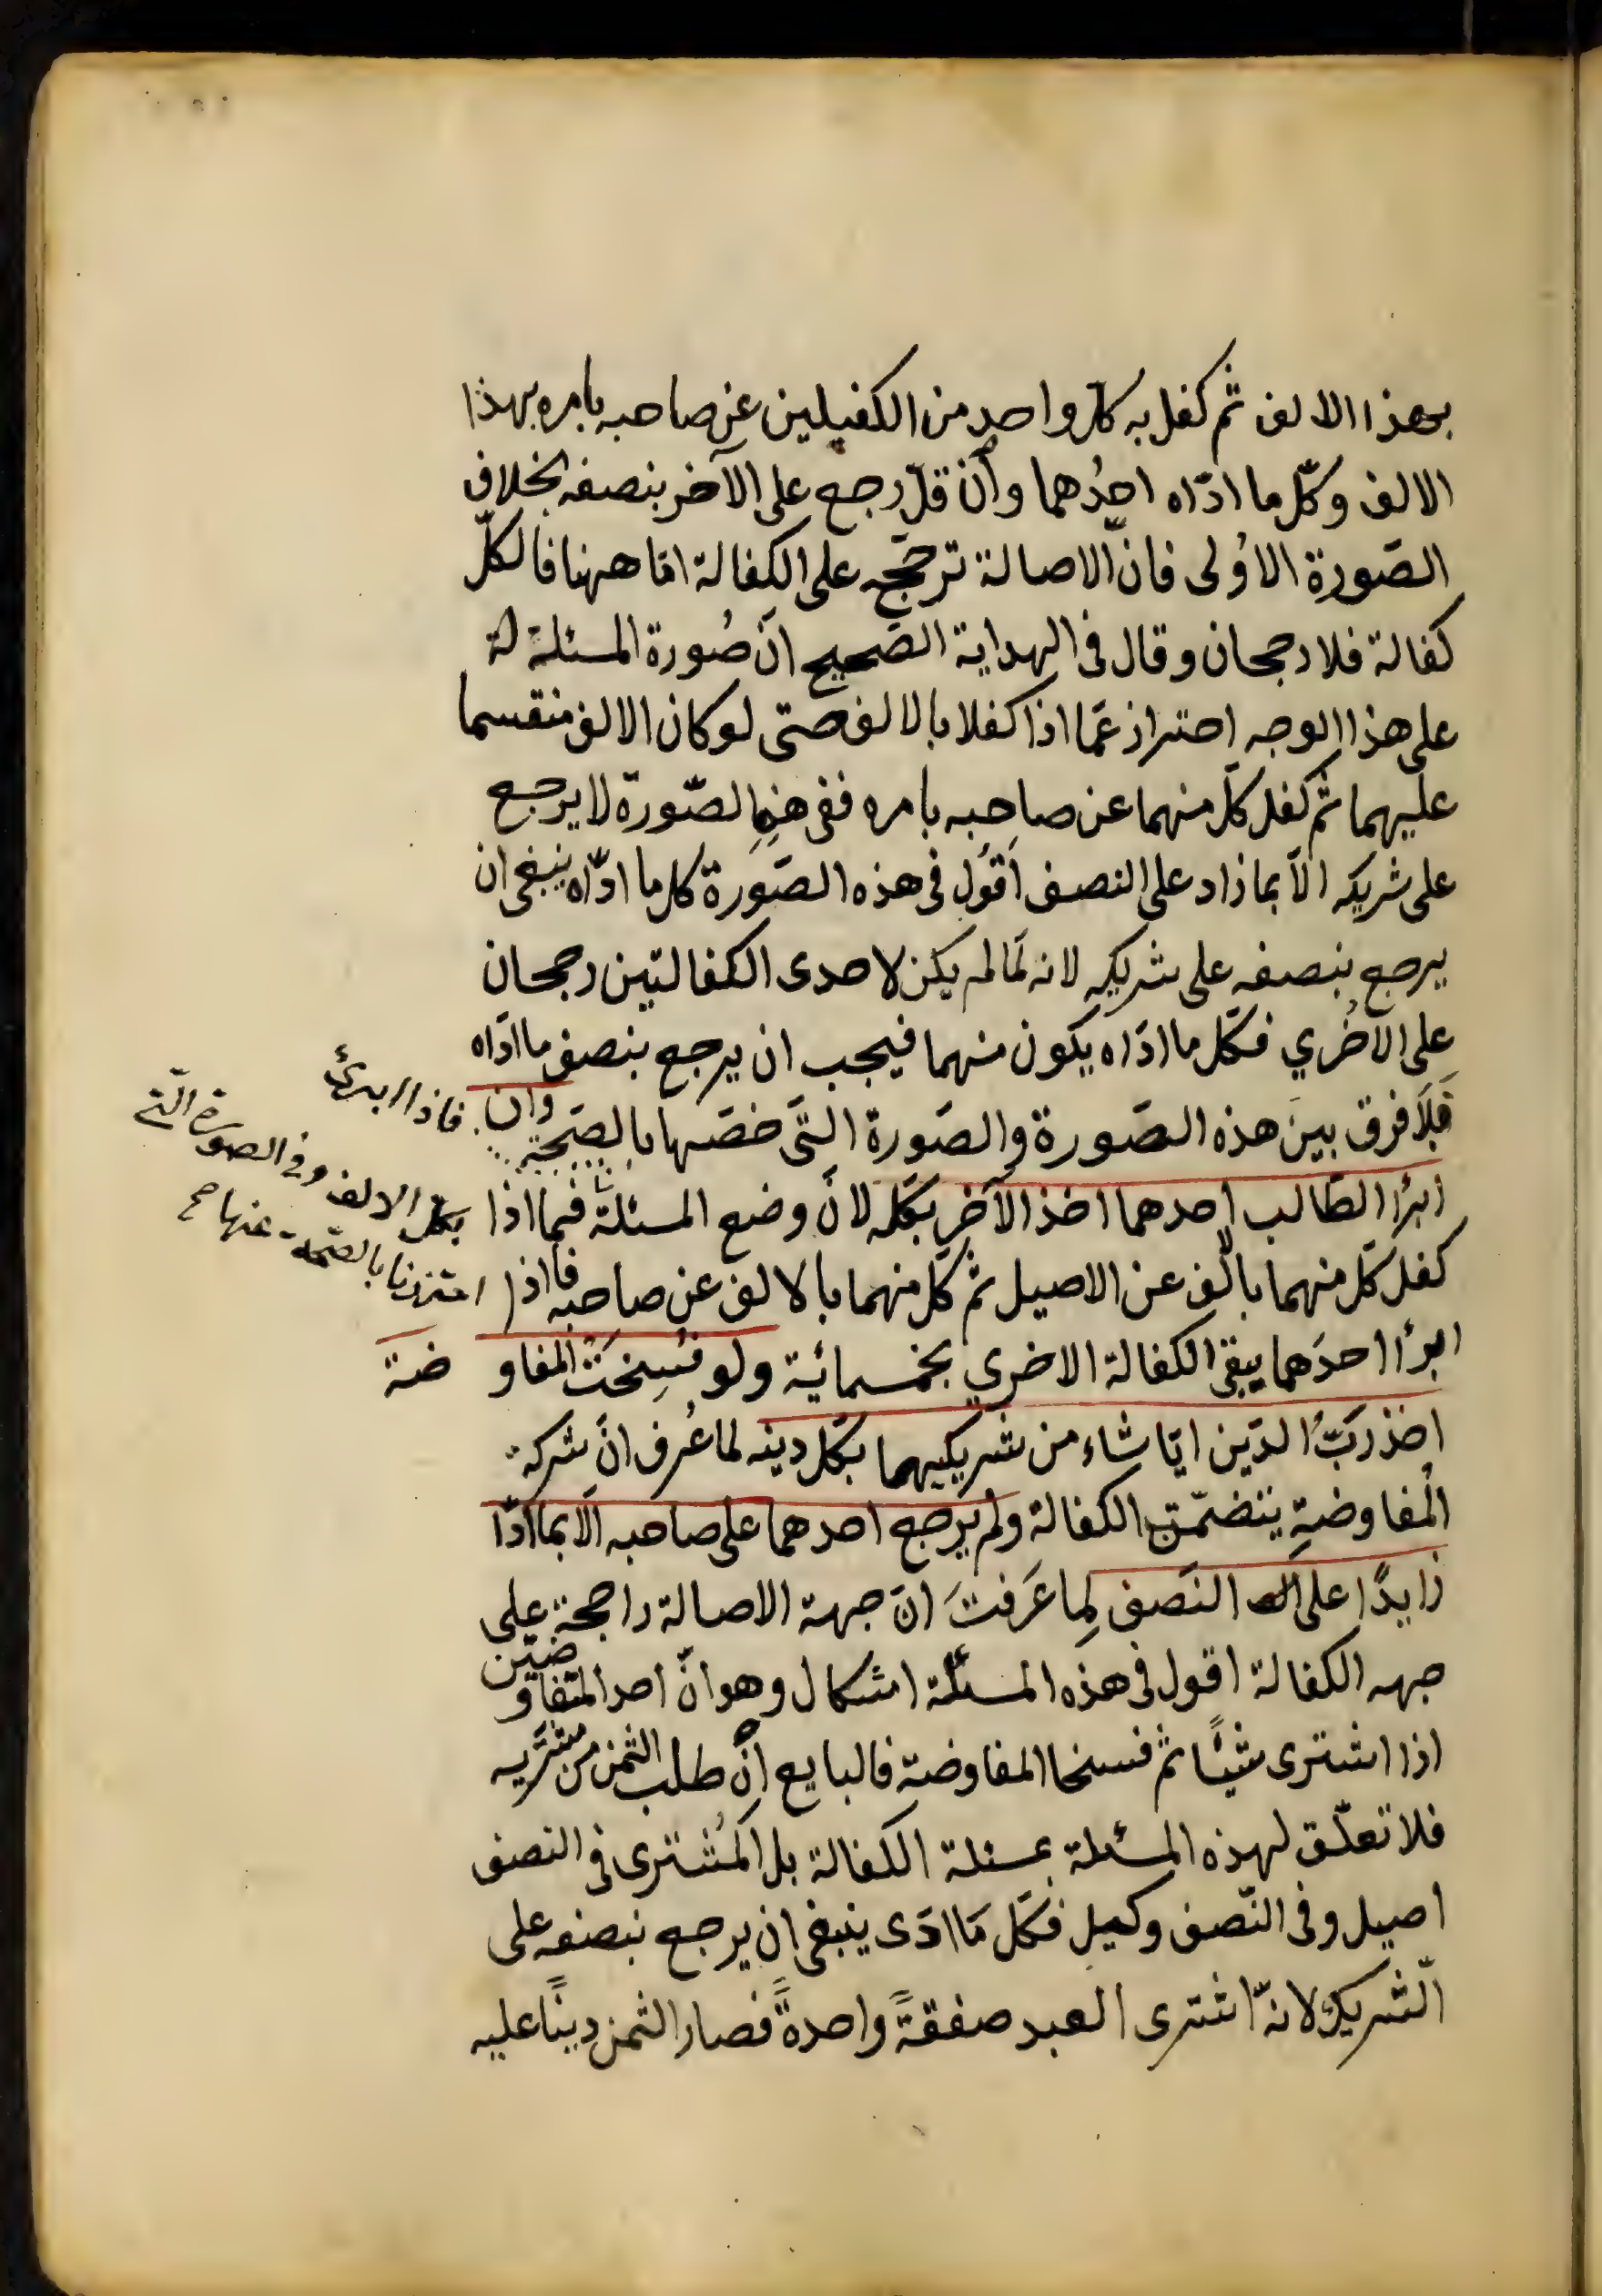 بهذا الالف ثم كفل به كل واحد من الكفيلين عن صاحبه بامره بهذا
الالف وكلّ ما ادّاه احدُهما وان قلّ رجع على الآخر بنصفه بخلاف
الصّورة الاُولى فانّ الاصالة ترجّح على الكفالة امّا ههنا فالكلّ
كفالة فلا رجحان وقال فى الهداية الصّحيح انّ صُورة المسئلة
على هذا الوجه احتراز عمّا اذا كفلا بالالف حتى لو كان الالف منقسما
عليهما ثم كفل كلّ منهما عن صاحبه بامره ففى هذه الصّورة لا يرجع
على شريكه الّا بما زاد على النصف اقول فى هذه الصّورة كل ما ادّاه ينبغى ان
يرجع بنصفه على شريكه لانه لمّا لم يكن لاحدى الكفالتين رجحان
على الاُخري فكلّ ما ادّاه يكون منهما فيجب ان يرجع بنصف ما ادّاه
فلا فرق بينَ هذه الصّورة والصّورة التى خصّها بالصّحّة وان
ابرأ الطّالب احدهما اخذ الآخر بكلّه لانّ وضع المسئلة فيما اذا
كفل كلّ منهما بالالف عن الاصيل ثم كلّ منهما بالالف عن صاحبه فاذا
ابرأ احدَهما يبقى الكفالة الاخري بخمسمائية ولو فُسِخَتْ المفاوضة
اخذ ربّ الدّين ايّا شاء من شريكيهما بكلّ دينه لما عُرف انّ شركة
المُفاوضةِ يتضمّن الكفالة ولم يرجع احدهما على صاحبه الّا بما ادّا
زايدًا على النّصف لِما عَرَفتَ انّ جهة الاصالة راجحة على
جهه الكفالة اقول فى هذه المسئلة اشكال وهو انّ احد المتفاوضين
اذا اشترى شيئًا ثم فسخا المفاوضة فالبايع اِنْ طلب الثمن من مشتريه
فلا تعلّق لهذه المسئلة بمسئلة الكفالة بل المُشترى فى النصف
اصيل وفى النّصف وكيل فكلّ مَا ادّى ينبغى ان يرجع بنصفه على
الّشريك لانّه اشترى العبد صفقةً واحدةً فصار الثمن دينًا عليه
فاذا ابرئ
بكل الالف وفى الصورة التى
احترزنا بالصّحة عنها صح